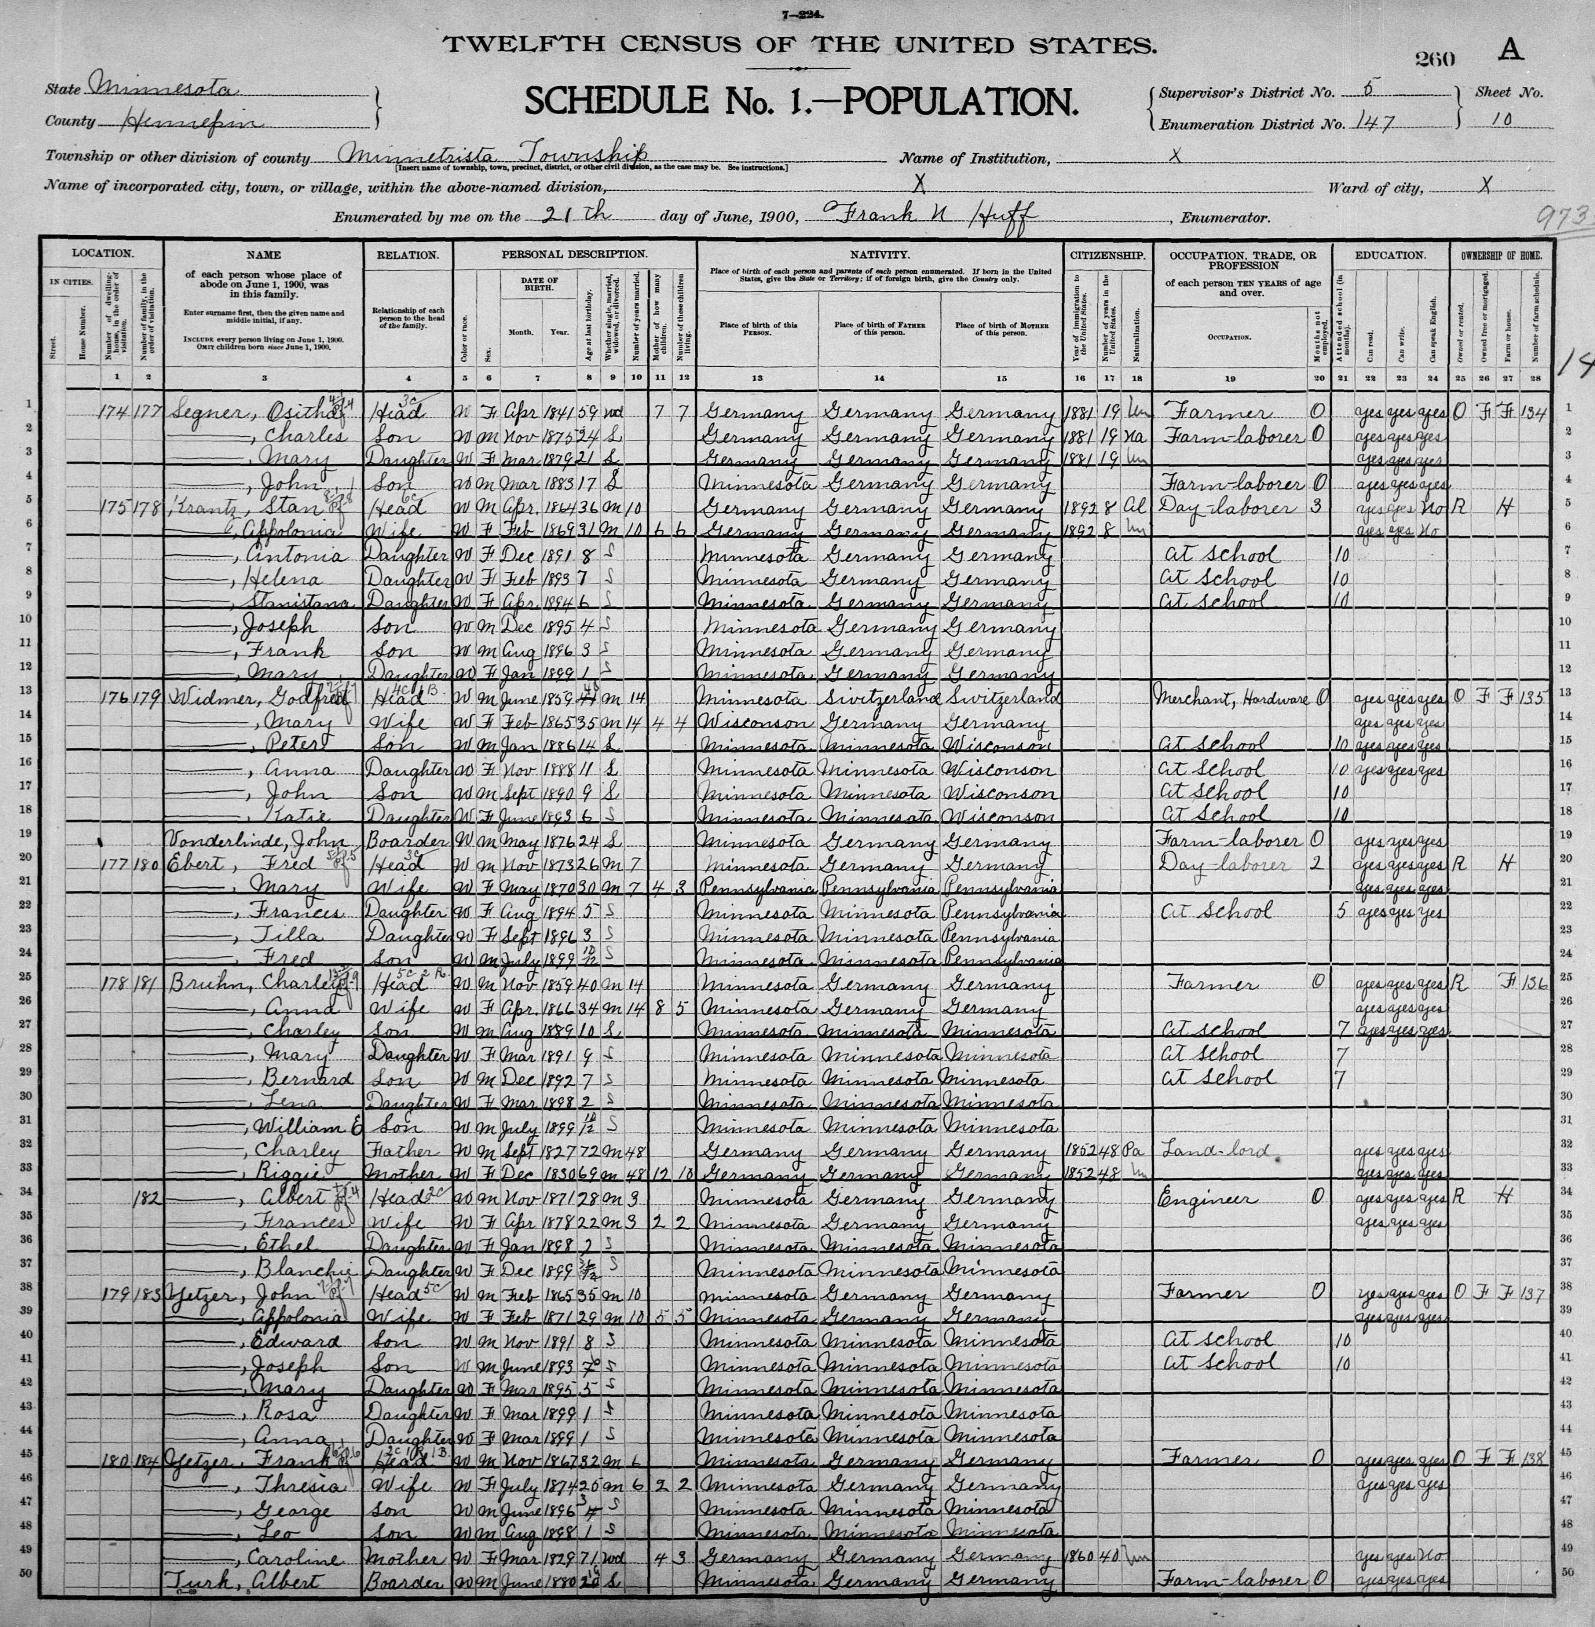 7—224.
TWELFTH CENSUS OF THE UNITED STATES.
260 A
State Minnesota
County Hennepin
SCHEDULE No. 1.—POPULATION.
Supervisor's District No. 5 Sheet No.
Enumeration District No. 147 10
Township or other division of county Minnetrista Township Name of Institution, X
[Insert name of township, town, precinct, district, or other civil division, as the case may be. See instructions.]
Name of incorporated city, town, or village, within the above-named division, X Ward of city, X
Enumerated by me on the 21th day of June, 1900, Frank N Huff, Enumerator.
973
LOCATION. NAME RELATION. PERSONAL DESCRIPTION. NATIVITY. CITIZENSHIP. OCCUPATION, TRADE, OR PROFESSION EDUCATION. OWNERSHIP OF HOME.
IN CITIES. Street. House Number. Number of dwelling-house, in the order of visitation. Number of family, in the order of visitation.
of each person whose place of abode on June 1, 1900, was in this family.
Enter surname first, then the given name and middle initial, if any.
INCLUDE every person living on June 1, 1900. OMIT children born since June 1, 1900.
Relationship of each person to the head of the family.
Color or race. Sex. DATE OF BIRTH. Month. Year. Age at last birthday. Whether single, married, widowed, or divorced. Number of years married. Mother of how many children. Number of these children living.
Place of birth of each person and parents of each person enumerated. If born in the United States, give the State or Territory; if of foreign birth, give the Country only.
Place of birth of this PERSON. Place of birth of FATHER of this person. Place of birth of MOTHER of this person.
Year of immigration to the United States. Number of years in the United States. Naturalization.
of each person TEN YEARS of age and over.
OCCUPATION. Months not employed.
Attended school (in months). Can read. Can write. Can speak English.
Owned or rented. Owned free or mortgaged. Farm or house. Number of farm schedule.
14
1 2 3 4 5 6 7 8 9 10 11 12 13 14 15 16 17 18 19 20 21 22 23 24 25 26 27 28
1 174 177 Segner, Ositha Head W F Apr 1841 59 wd 7 7 Germany Germany Germany 1881 19 Un Farmer 0 yes yes yes O F F 134 1
2 ——, Charles Son W M Nov 1875 24 S Germany Germany Germany 1881 19 Na Farm-laborer 0 yes yes yes 2
3 ——, Mary Daughter W F Mar 1879 21 S Germany Germany Germany 1881 19 Un yes yes yes 3
4 ——, John Son W M Mar 1883 17 S Minnesota Germany Germany Farm-laborer 0 yes yes yes 4
5 175 178 Krantz, Stan Head W M Apr. 1864 36 M 10 Germany Germany Germany 1892 8 Al Day-laborer 3 yes yes No R H 5
6 ——, Appolonia Wife W F Feb 1869 31 M 10 6 6 Germany Germany Germany 1892 8 Un yes yes No 6
7 ——, Antonia Daughter W F Dec 1891 8 S Minnesota Germany Germany At School 10 7
8 ——, Helena Daughter W F Feb 1893 7 S Minnesota Germany Germany At School 10 8
9 ——, Stanistana Daughter W F Apr. 1894 6 S Minnesota Germany Germany At School 10 9
10 ——, Joseph Son W M Dec 1895 4 S Minnesota Germany Germany 10
11 ——, Frank Son W M Aug 1896 3 S Minnesota Germany Germany 11
12 ——, Mary Daughter W F Jan 1899 1 S Minnesota Germany Germany 12
13 176 179 Widmer, Godfred Head W M June 1859 M 14 Minnesota Switzerland Switzerland Merchant, Hardware 0 yes yes yes O F F 135 13
14 ——, Mary Wife W F Feb 1865 35 M 14 4 4 Wisconson Germany Germany yes yes yes 14
15 ——, Peter Son W M Jan 1886 14 S Minnesota Minnesota Wisconson At School 10 yes yes yes 15
16 ——, Anna Daughter W F Nov 1888 11 S Minnesota Minnesota Wisconson At School 10 yes yes yes 16
17 ——, John Son W M Sept 1890 9 S Minnesota Minnesota Wisconson At School 10 17
18 ——, Katie Daughter W F June 1893 6 S Minnesota Minnesota Wisconson At School 10 18
19 Vonderlinde, John Boarder W M May 1876 24 S Minnesota Germany Germany Farm-laborer 0 yes yes yes 19
20 177 180 Ebert, Fred Head W M Nov 1873 26 M 7 Minnesota Germany Germany Day-laborer 2 yes yes yes R H 20
21 ——, Mary Wife W F May 1870 30 M 7 4 3 Pennsylvania Pennsylvania Pennsylvania yes yes yes 21
22 ——, Frances Daughter W F Aug 1894 5 S Minnesota Minnesota Pennsylvania At School 5 yes yes yes 22
23 ——, Tilla Daughter W F Sept 1896 3 S Minnesota Minnesota Pennsylvania 23
24 ——, Fred Son W M July 1899 10/12 S Minnesota Minnesota Pennsylvania 24
25 178 181 Bruhn, Charley Head W M Nov 1859 40 M 14 Minnesota Germany Germany Farmer 0 yes yes yes R F 136 25
26 ——, Anna Wife W F Apr. 1866 34 M 14 8 5 Minnesota Germany Germany yes yes yes 26
27 ——, Charley Son W M Aug 1889 10 S Minnesota Minnesota Minnesota At School 7 yes yes yes 27
28 ——, Mary Daughter W F Mar 1891 9 S Minnesota Minnesota Minnesota At School 7 28
29 ——, Bernard Son W M Dec 1892 7 S Minnesota Minnesota Minnesota At School 7 29
30 ——, Lena Daughter W F Mar 1898 2 S Minnesota Minnesota Minnesota 30
31 ——, William E Son W M July 1899 10/12 S Minnesota Minnesota Minnesota 31
32 ——, Charley Father W M Sept 1827 72 M 48 Germany Germany Germany 1852 48 Pa Land-lord 32 yes yes yes
33 ——, Riggie Mother W F Dec 1830 69 M 48 12 10 Germany Germany Germany 1852 48 Un yes yes yes 33
34 182 ——, Albert Head W M Nov 1871 28 M 3 Minnesota Germany Germany Engineer 0 yes yes yes R H 34
35 ——, Frances Wife W F Apr 1878 22 M 3 2 2 Minnesota Germany Germany yes yes yes 35
36 ——, Ethel Daughter W F Jan 1898 2 S Minnesota Minnesota Minnesota 36
37 ——, Blanchie Daughter W F Dec 1899 S Minnesota Minnesota Minnesota 37
38 179 183 Yetzer, John Head W M Feb 1865 35 M 10 Minnesota Germany Germany Farmer 0 yes yes yes O F F 137 38
39 ——, Appolonia Wife W F Feb 1871 29 M 10 5 5 Minnesota Germany Germany yes yes yes 39
40 ——, Edward Son W M Nov 1891 8 S Minnesota Minnesota Minnesota At School 10 40
41 ——, Joseph Son W M June 1893 S Minnesota Minnesota Minnesota At School 10 41
42 ——, Mary Daughter W F Mar 1895 5 S Minnesota Minnesota Minnesota 42
43 ——, Rosa Daughter W F Mar 1899 1 S Minnesota Minnesota Minnesota 43
44 ——, Anna Daughter W F Mar 1899 1 S Minnesota Minnesota Minnesota 44
45 180 184 Yetzer, Frank Head W M Nov 1867 32 M 6 Minnesota Germany Germany Farmer 0 yes yes yes O F F 138 45
46 ——, Thresia Wife W F July 1874 25 M 6 2 2 Minnesota Germany Germany yes yes yes 46
47 ——, George Son W M June 1896 3 S Minnesota Minnesota Minnesota 47
48 ——, Leo Son W M Aug 1898 1 S Minnesota Minnesota Minnesota 48
49 ——, Caroline Mother W F Mar 1829 71 wd 4 3 Germany Germany Germany 1860 40 Un yes yes No 49
50 Turk, Albert Boarder W M June 1880 S Minnesota Germany Germany Farm-laborer 0 yes yes yes 50